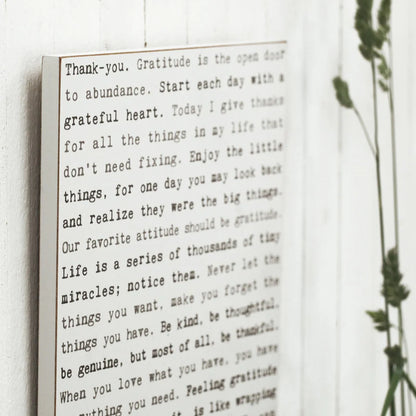 Thank-you. Gratitude is the open door
to abundance. Start each day with a
grateful heart. Today I give thanks
for all the things in my life that
don't need fixing. Enjoy the little
things, for one day you may look back
and realize they were the big things.
Our favorite attitude should be gratitude.
Life is a series of thousands of tiny
miracles; notice them. Never let the
things you want, make you forget the
things you have. Be kind, be thoughtful,
be genuine, but most of all, be thankful.
When you love what you have, you have
everything you need. Feeling gratitude
it, is like wrapping